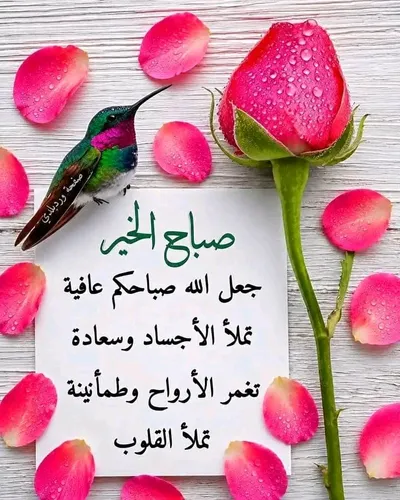 صباح الخير
جعل الله صباحكم عافية
تملأ الأجساد وسعادة
تغمر الأرواح وطمأنينة
تملأ القلوب
صفحة وردبلدي